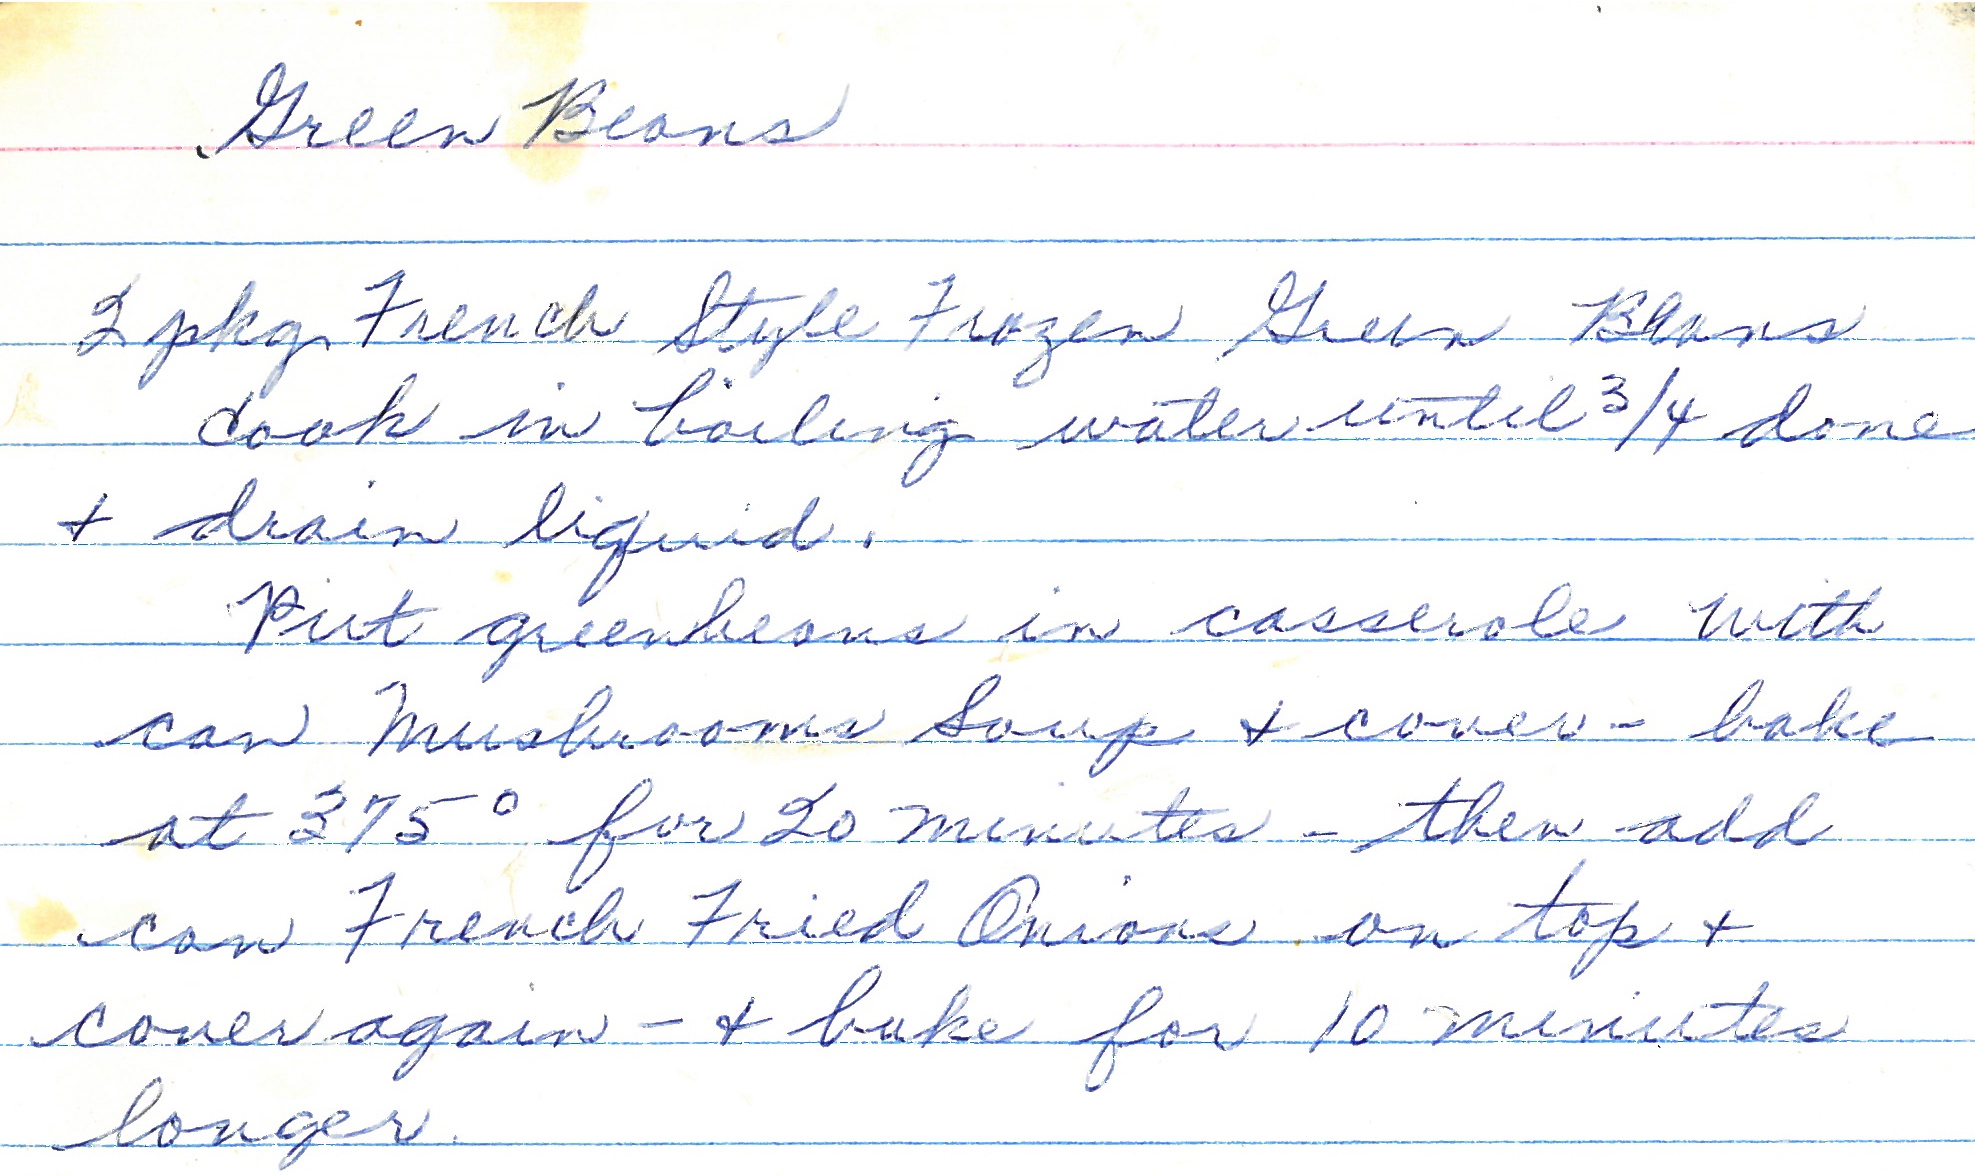 Green Beans
2 pkg. French Style Frozen Green Beans
Cook in boiling water until 3/4 done
+ drain liquid.
Put greenbeans in casserole with
can Mushrooms Soup + cover - bake
at 375° for 20 minutes - then add
can French Fried Onions on top +
cover again - + bake for 10 minutes
longer.